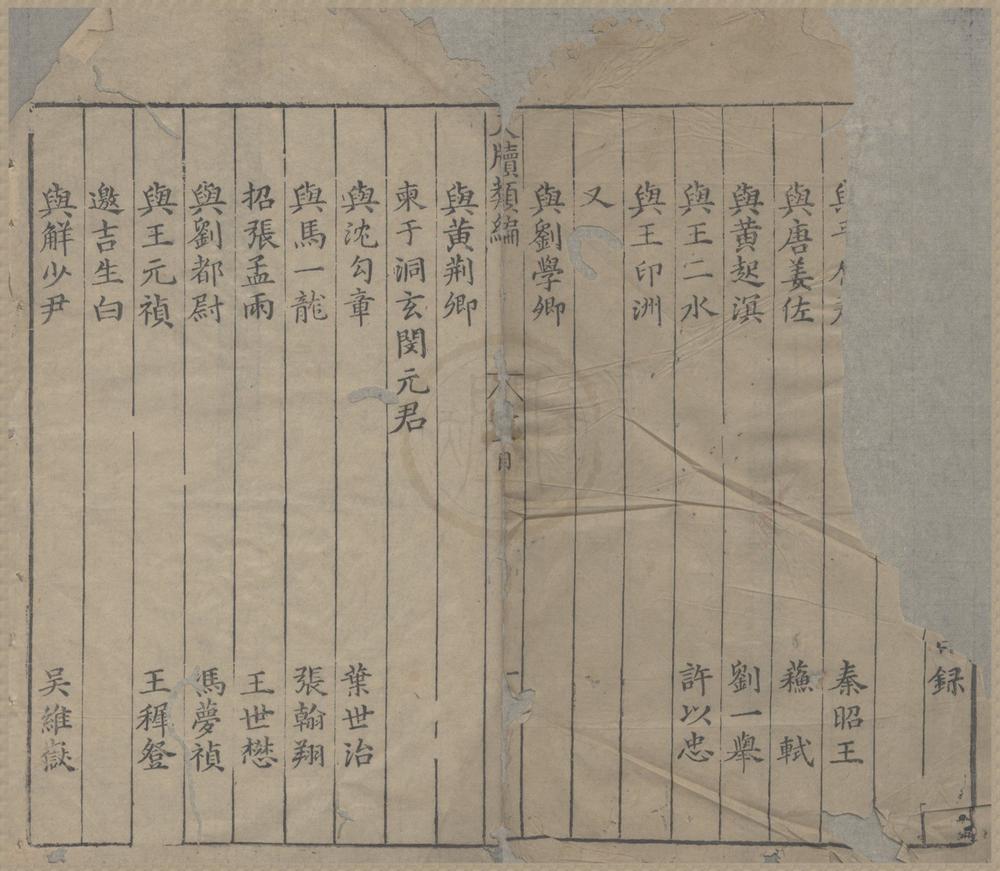 録
與平 秦昭王
與唐姜佐 蘓軾
與黄起溟 劉一舉
與王二水 許以忠
與王印洲
又
與劉學卿
牘類編 目 一
與黄荆卿
柬于洞玄閔元君
與沈勾章 葉世治
與馬一龍 張翰翔
招張孟雨 王世懋
與劉都尉 馮夢禎
與王元禎 王穉登
邀吉生白
與解少尹 吴維嶽